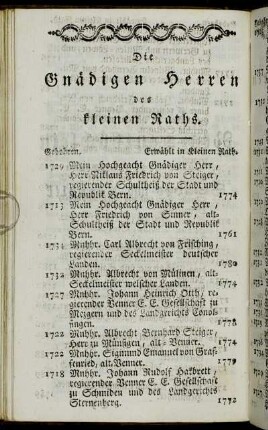 Die
Gnädigen Herren
des
kleinen Raths.
Gebohren. Erwählt in Kleinen Rath.
1729 Mein Hochgeacht Gnädiger Herr,
Herr Niklaus Friedrich von Steiger,
regierender Schultheiß der Stadt und
Republik Bern. 1774
1713 Mein Hochgeacht Gnädiger Herr,
Herr Friedrich von Sinner, alt-
Schultheiß der Stadt und Republik
Bern. 1761
1734 Mnhhr. Carl Albrecht von Frisching,
regierender Seckelmeister deutscher
Landen. 1780
1732 Mnhhr. Albrecht von Mülinen, alt-
Seckelmeister welscher Landen. 1774
1727 Mnhhr. Johann Heinrich Otth, re-
gierender Venner E. E. Gesellschaft zu
Mezgern und des Landgerichts Conol-
fingen. 1778
1722 Mnhhr. Albrecht Bernhard Steiger,
Herr zu Münsigen, alt-Venner. 1774
1722 Mnhhr. Sigmund Emanuel von Graf-
fenried, alt-Venner. 1779
1718 Mnhhr. Johann Rudolf Hakbrett,
regierender Venner E. E. Gesellschaft
zu Schmiden und des Landgerichts
Sternenberg. 1772